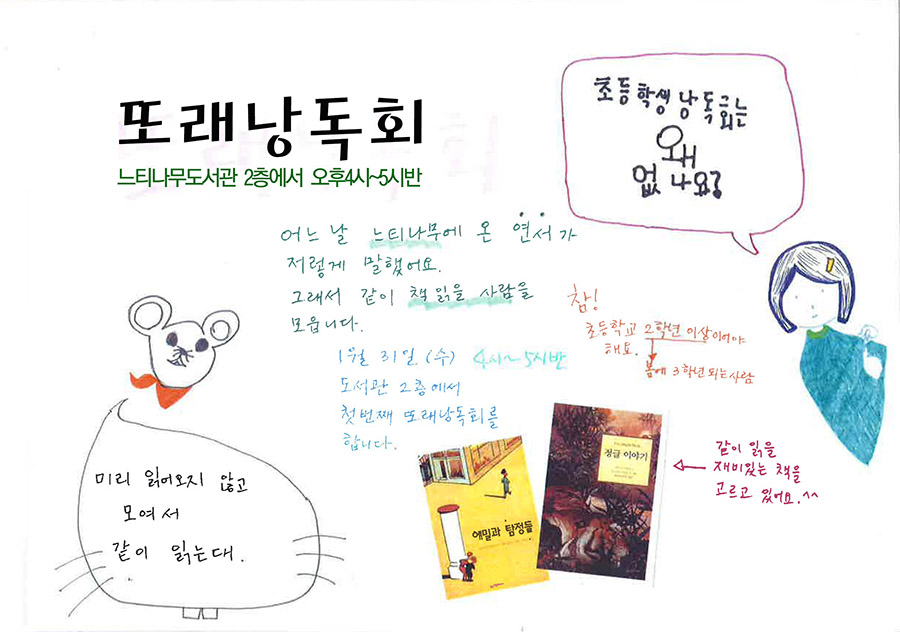 또래낭독회
느티나무도서관 2층에서 오후4시~5시반
초등학생 낭독회는
왜
없나요?
어느 날 느티나무에 온 연서가
저렇게 말했어요.
그래서 같이 책 읽을 사람을
모읍니다.
1월 31일 (수) 4시~5시반
도서관 2층에서
첫번째 또래낭독회를
합니다.
참!
초등학교 2학년 이상이어야
해요.
봄에 3학년 되는 사람
미리 읽어오지 않고
모여서
같이 읽는대.
에밀과 탐정들
정글 이야기
같이 읽을
재미있는 책을
고르고 있어요.^^